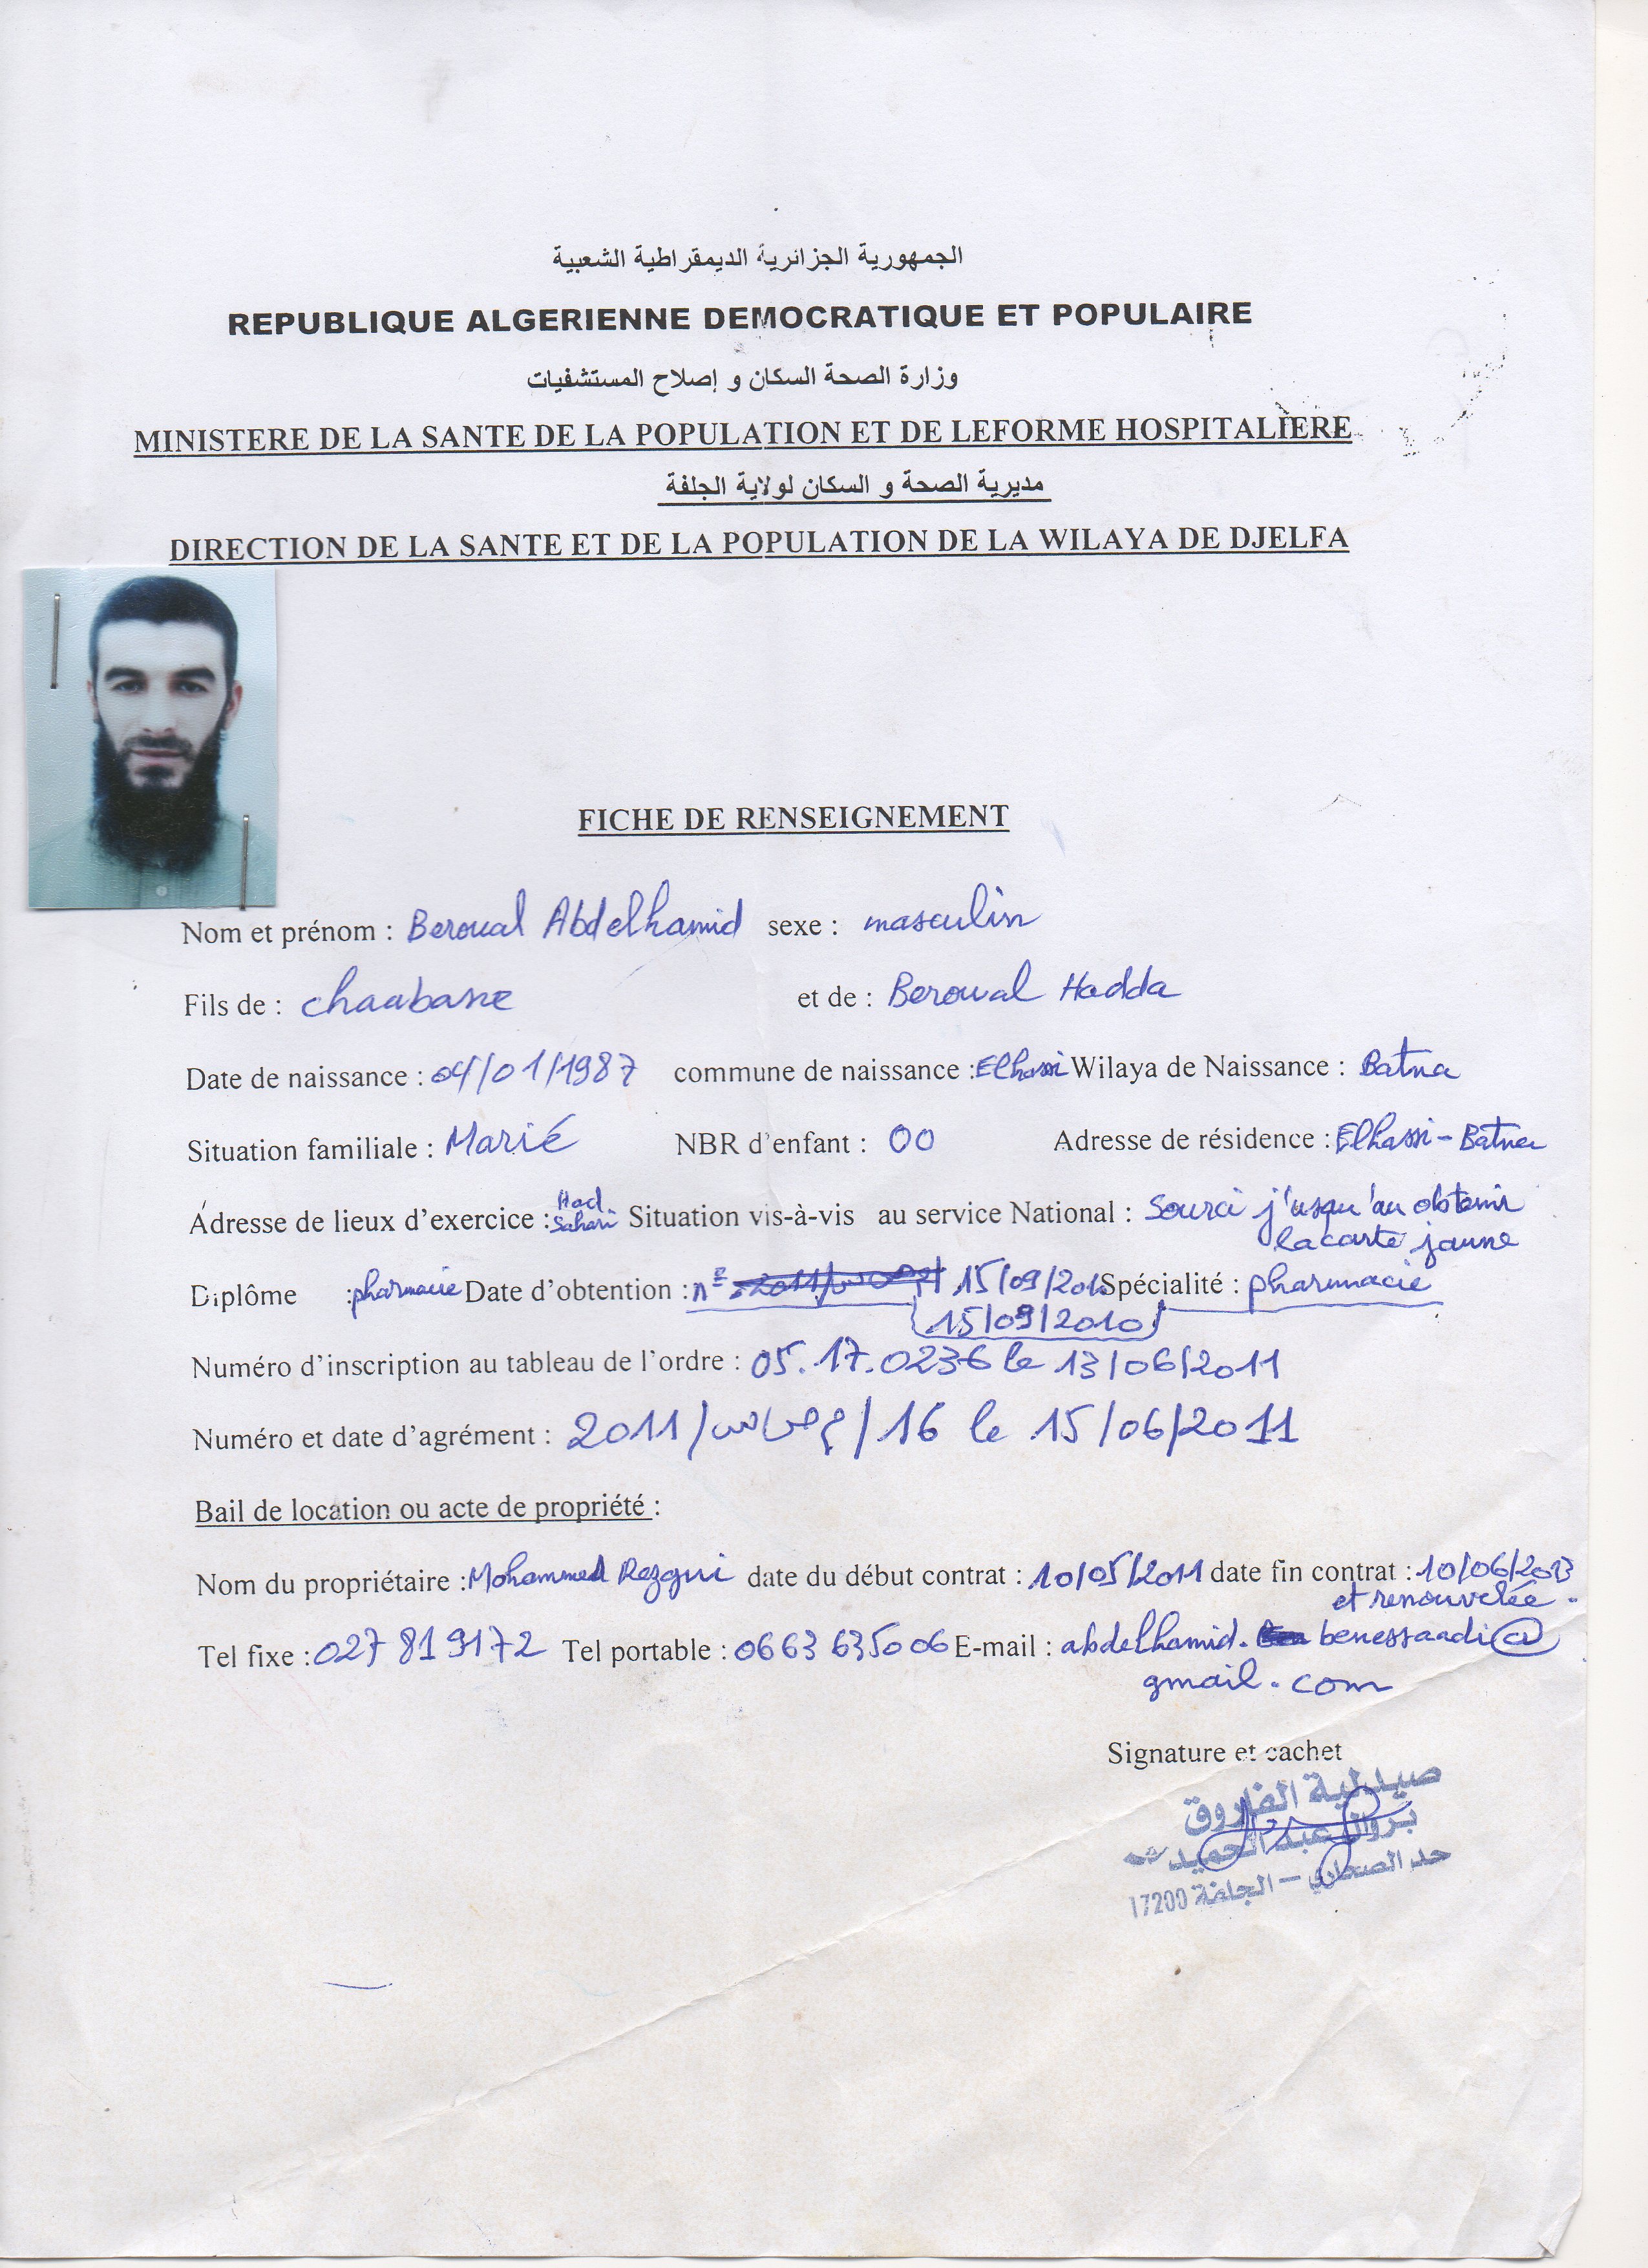 الجمهورية الجزائرية الديمقراطية الشعبية
REPUBLIQUE ALGERIENNE DEMOCRATIQUE ET POPULAIRE
وزارة الصحة السكان و إصلاح المستشفيات
MINISTERE DE LA SANTE DE LA POPULATION ET DE LEFORME HOSPITALIERE
مديرية الصحة و السكان لولاية الجلفة
DIRECTION DE LA SANTE ET DE LA POPULATION DE LA WILAYA DE DJELFA
FICHE DE RENSEIGNEMENT
Nom et prénom : Beroual Abdelhamid sexe : masculin
Fils de : chaabane et de : Beroual Hadda
Date de naissance : 04/01/1987 commune de naissance : Elhassi Wilaya de Naissance : Batna
Situation familiale : Marié NBR d'enfant : 00 Adresse de résidence : Elhassi - Batna
Adresse de lieux d'exercice : Had Sahari Situation vis-à-vis au service National : Sourci j'usqu'au obtenir
la carte jaune
Diplôme : pharmacie Date d'obtention : n° 15/09/2010 Spécialité : pharmacie
15/09/2010
Numéro d'inscription au tableau de l'ordre : 05.17.0236 le 13/06/2011
Numéro et date d'agrément : 2011/ /16 le 15/06/2011
Bail de location ou acte de propriété :
Nom du propriétaire : Mohammed Rezgui date du début contrat : 10/05/2011 date fin contrat : 10/06/2013
et renouvelée .
Tel fixe : 027 819172 Tel portable : 0663 635006 E-mail : abdelhamid. benessaadi@
gmail.com
Signature et cachet
صيدلية الفاروق
بروال عبد الحميد
حد الصحاري – الجلفة 17200